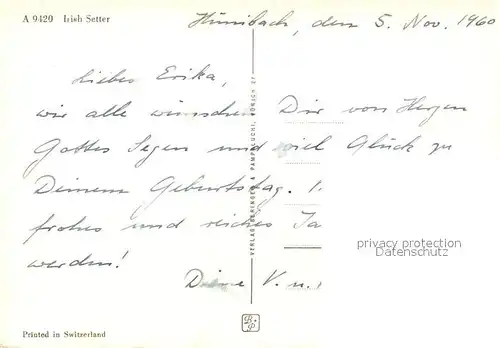 A 9420 Irish Setter
Hünibach, den 5. Nov. 1960
Liebe Erika,
wir alle wünschen Dir von Herzen
Gottes Segen und viel Glück zu
Deinem Geburtstag.
frohes und reiches Ja
werden!
Deine V. u.
VERLAG BERINGER & PAMPALUCHI, ZÜRICH 27
privacy protection
Datenschutz
B+P
Printed in Switzerland